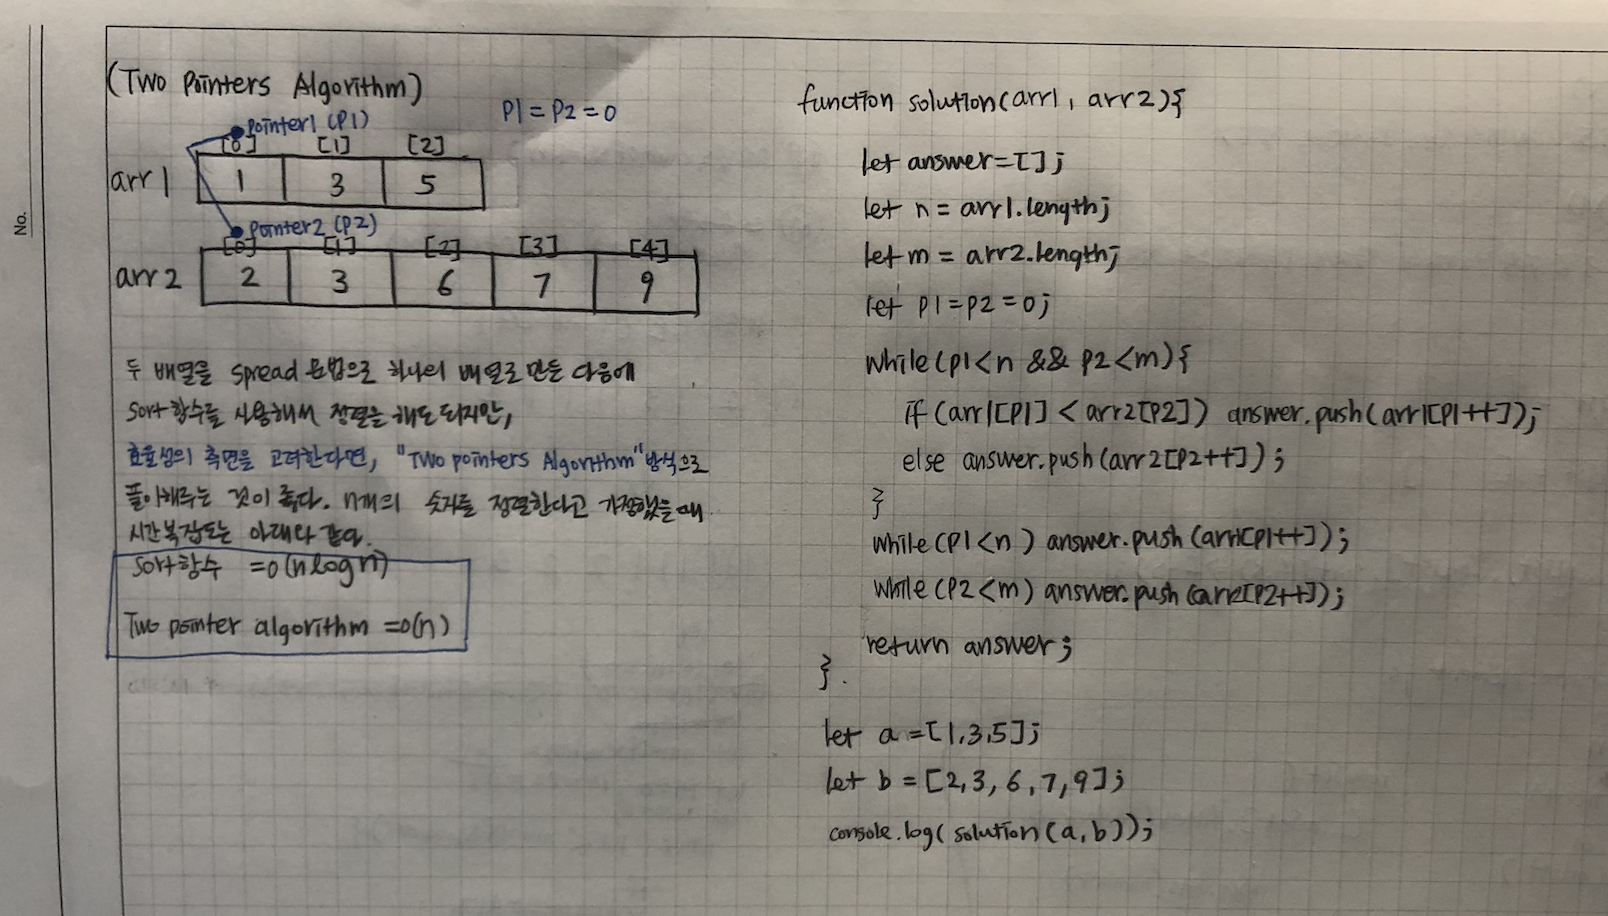 No.
(Two Pointers Algorithm)
P1 = P2 = 0
pointer1 (P1)
[0] [1] [2]
arr1 1 3 5
pointer2 (P2)
[0] [1] [2] [3] [4]
arr2 2 3 6 7 9
두 배열을 spread 문법으로 하나의 배열로 만든 다음에
sort 함수를 사용해서 정렬을 해도 되지만,
효율성의 측면을 고려한다면, "Two pointers Algorithm" 방식으로
풀이해주는 것이 좋다. n개의 숫자를 정렬한다고 가정했을 때
시간복잡도는 아래와 같다.
sort 함수 = O(n log n)
Two pointer algorithm = O(n)
function solution(arr1, arr2){
let answer=[];
let n = arr1.length;
let m = arr2.length;
let p1=p2=0;
while(p1<n && p2<m){
if(arr1[p1] < arr2[p2]) answer.push(arr1[p1++]);
else answer.push(arr2[p2++]);
}
while(p1<n) answer.push(arr1[p1++]);
while(p2<m) answer.push(arr2[p2++]);
return answer;
}.
let a=[1,3,5];
let b=[2,3,6,7,9];
console.log(solution(a,b));